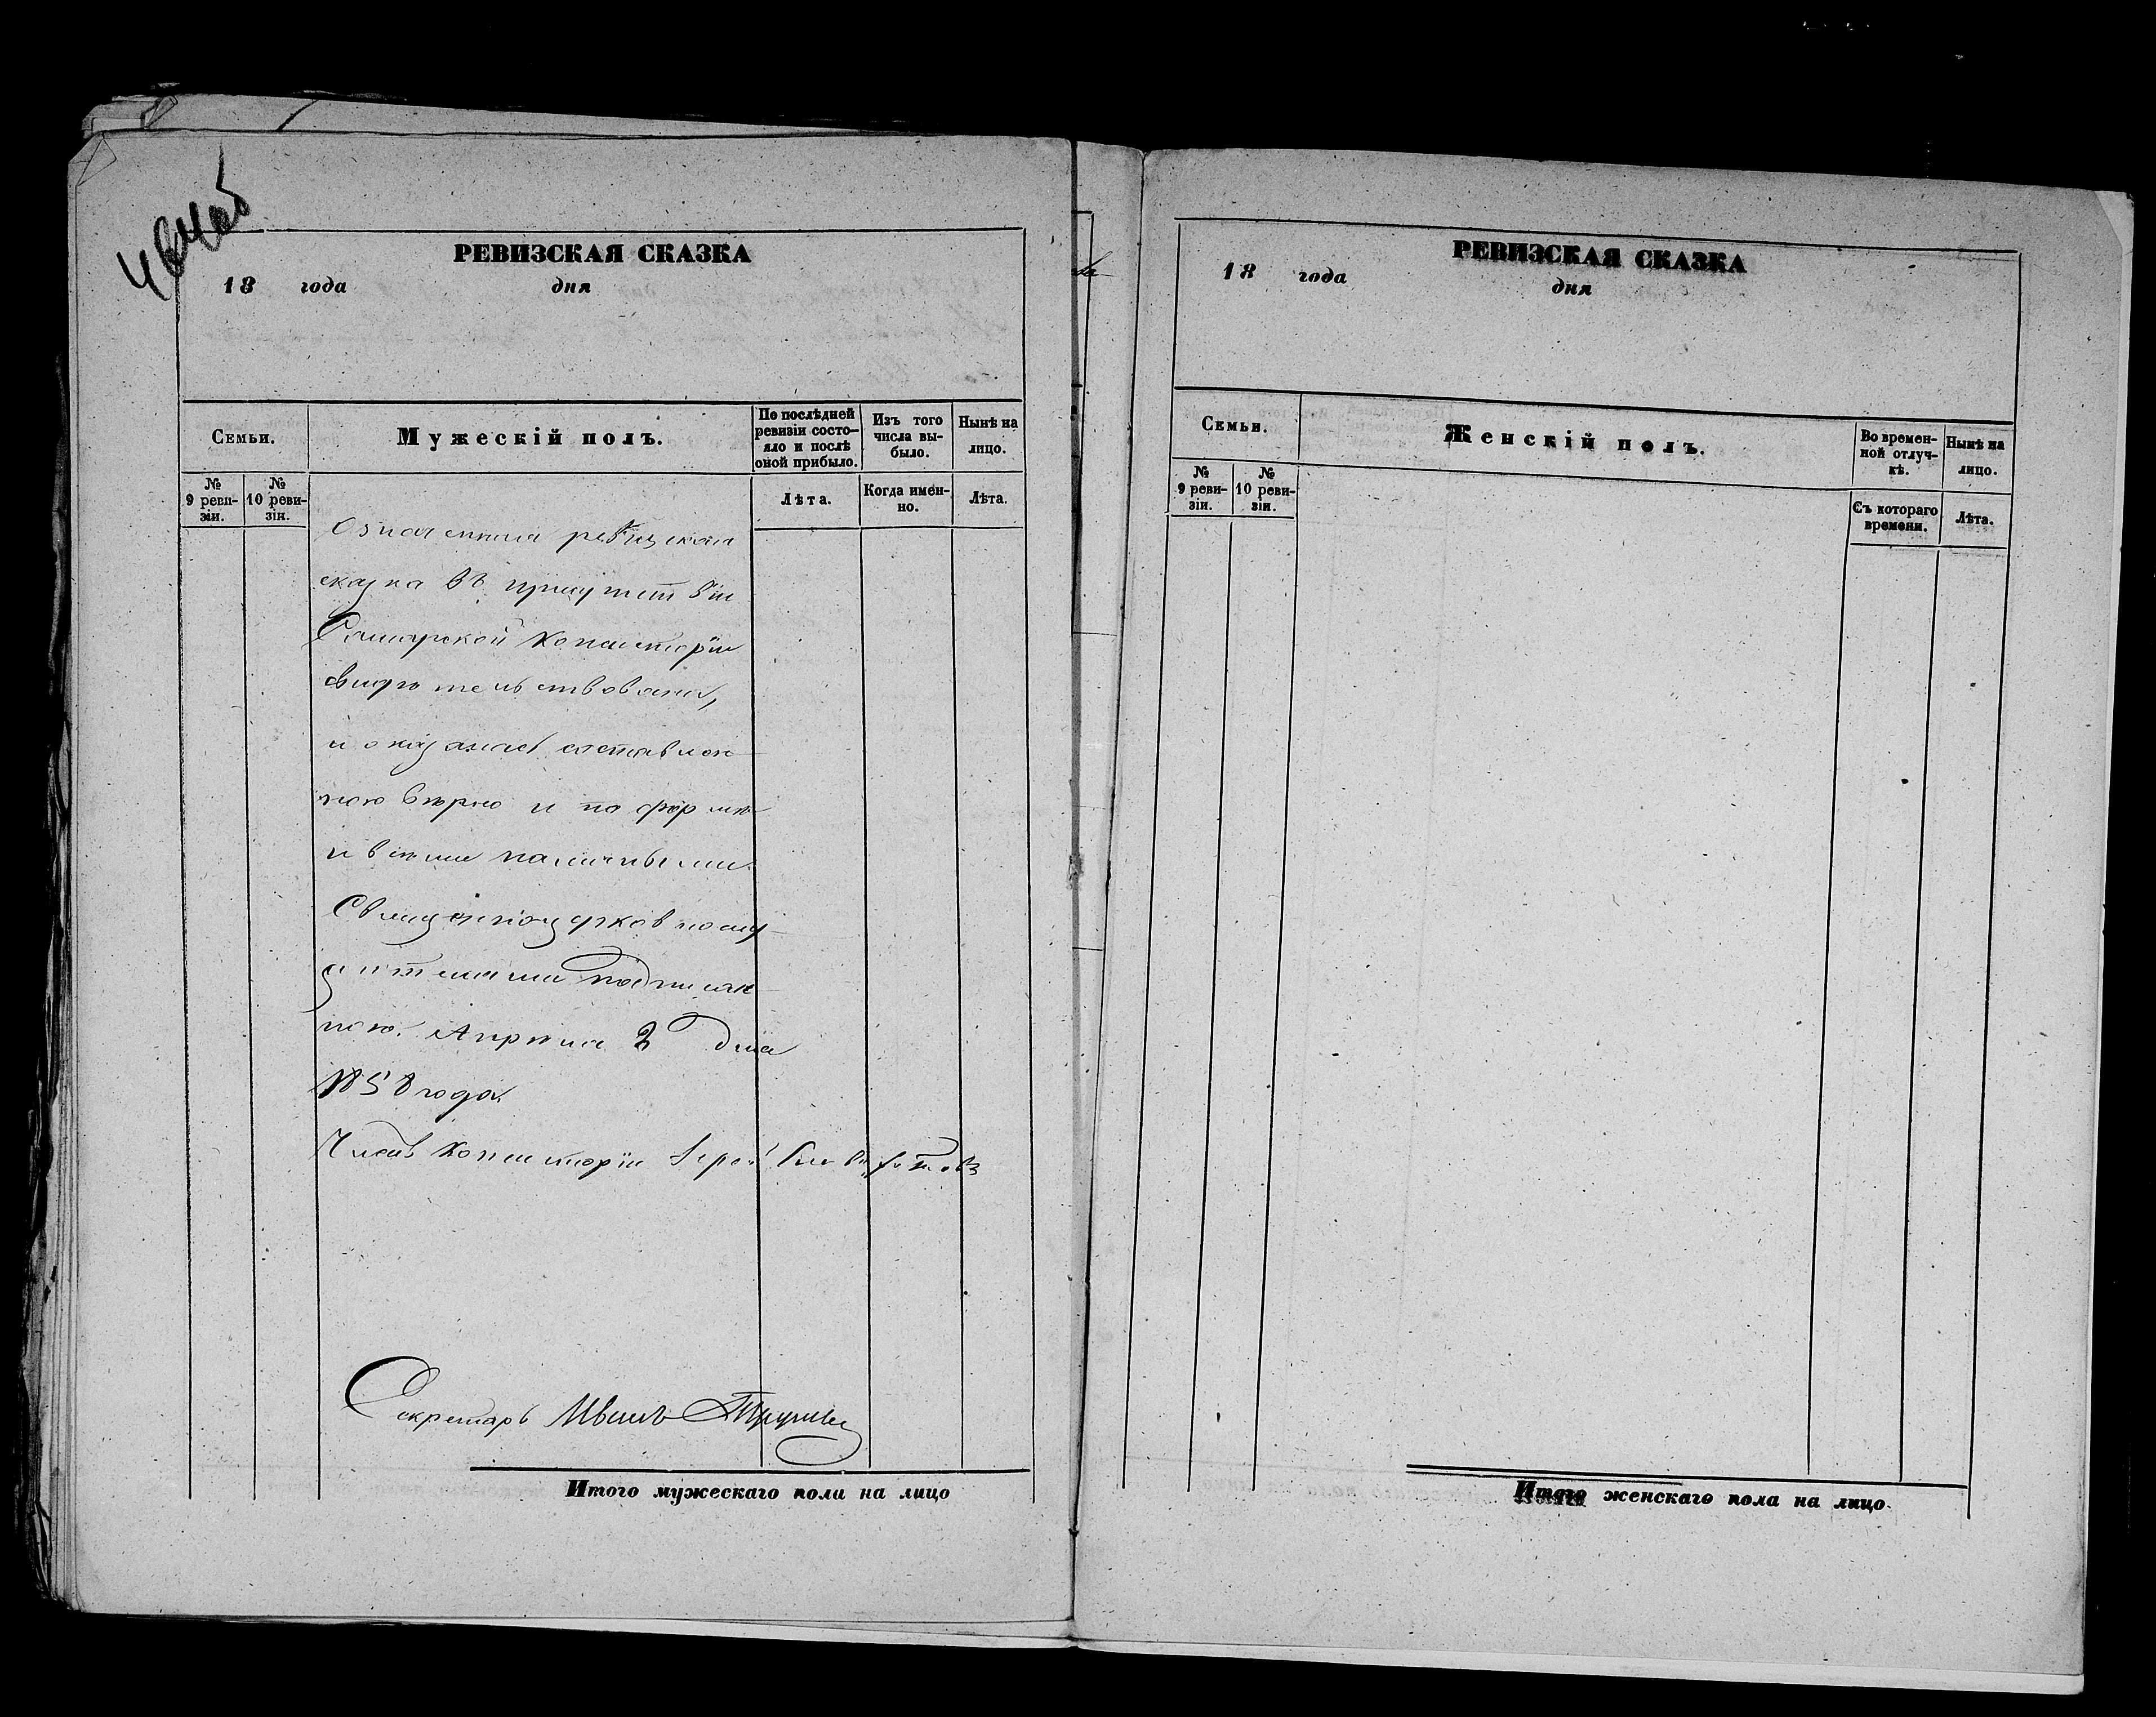 РЕВИЗСКАЯ СКАЗКА
18 года дня
Семьи.
Мужескій полъ.
По послѣдней ревизіи состояло и послѣ оной прибыло.
Изъ того числа выбыло.
Нынѣ на лицо.
№ 9 ревизіи.
№ 10 ревизіи.
Лѣта.
Когда именно.
Лѣта.
Означенная ревизская
сказка въ присутствіи
Самарской Консисторіи
свидѣтельствована,
и оказалась составлен-
ною вѣрно и по формѣ
и всѣми наличными
Священноцерковнослу-
жителями подписан-
ною. Апрѣля 2 дня
1858 года.
Членъ Консисторіи Іерей
Секретарь Иванъ
Итого мужескаго пола на лицо
РЕВИЗСКАЯ СКАЗКА
18 года дня
Семьи.
Женскій полъ.
Во временной отлучкѣ.
Нынѣ на лицо.
№ 9 ревизіи.
№ 10 ревизіи.
Съ котораго времени.
Лѣта.
Итого женскаго пола на лицо